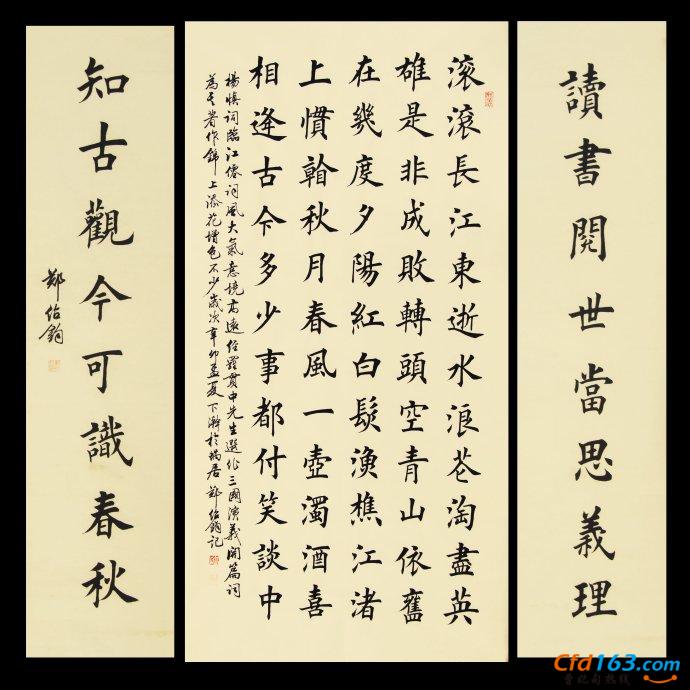 讀書閱世當思義理
滾滾長江東逝水浪花淘盡英
雄是非成敗轉頭空青山依舊
在幾度夕陽紅白髮漁樵江渚
上慣看秋月春風一壺濁酒喜
相逢古今多少事都付笑談中
楊慎詞臨江僊詞風大氣意境高遠經羅貫中先生選作三國演義開篇詞
為其著作錦上添花增色不少歲次辛卯孟夏下澣於蝸居鄭紹鈞記
知古觀今可識春秋
鄭紹鈞
Cfd163.com
曹妃甸热线